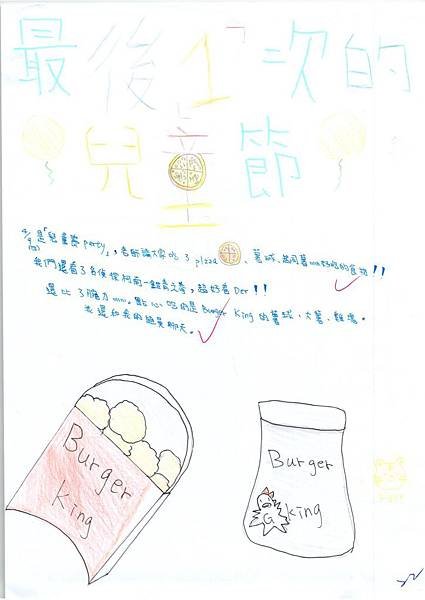 最後1次的
兒童節
4/9(四)是「兒童節party」，老師請大家吃了pizza、薯球、超好吃的食物!!
我們還看了名偵探柯南-紺青之拳，超好看Der!!
還比了腕力。點心吃的是Burger King的薯球、大薯、雞塊。
我還和我的組員聊天。
Burger
King
Burger
G King